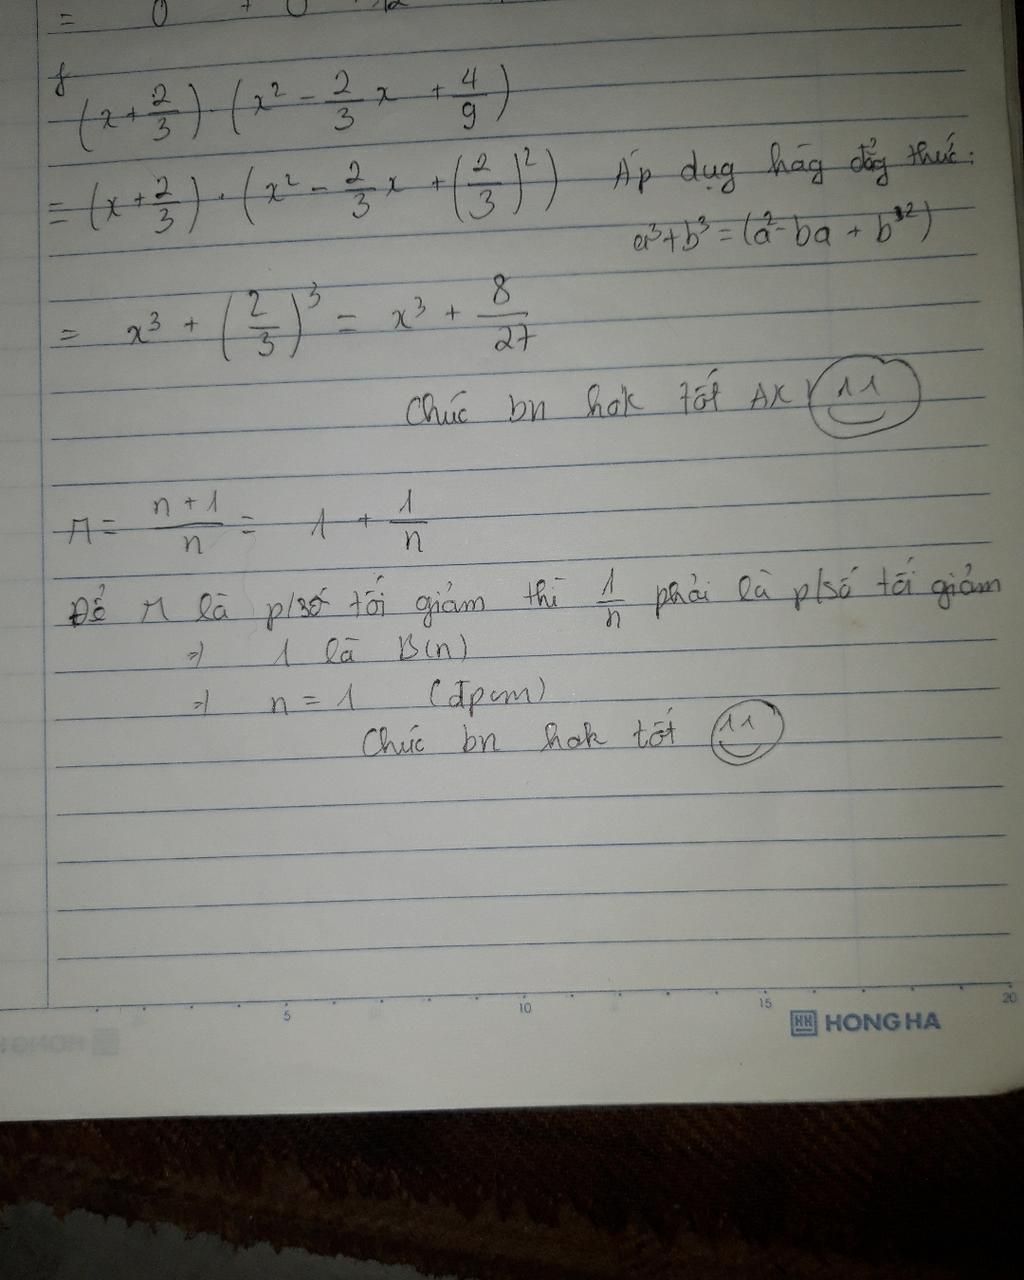 =
f
(x + 2/3) . (x² - 2/3 x + 4/9)
= (x + 2/3) . (x² - 2/3 x + (2/3)²) Áp dụg hág đẳg thức:
a³ + b³ = (a² - ba + b²)
= x³ + (2/3)³ = x³ + 8/27
Chúc bn hok tốt
A = n + 1/n = 1 + 1/n
Để A là p/số tối giảm thì 1/n phải là p/số tối giảm
=> 1 là B(n)
=> n = 1 (đpcm)
Chúc bn hok tốt
5 10 15 20
HONG HA